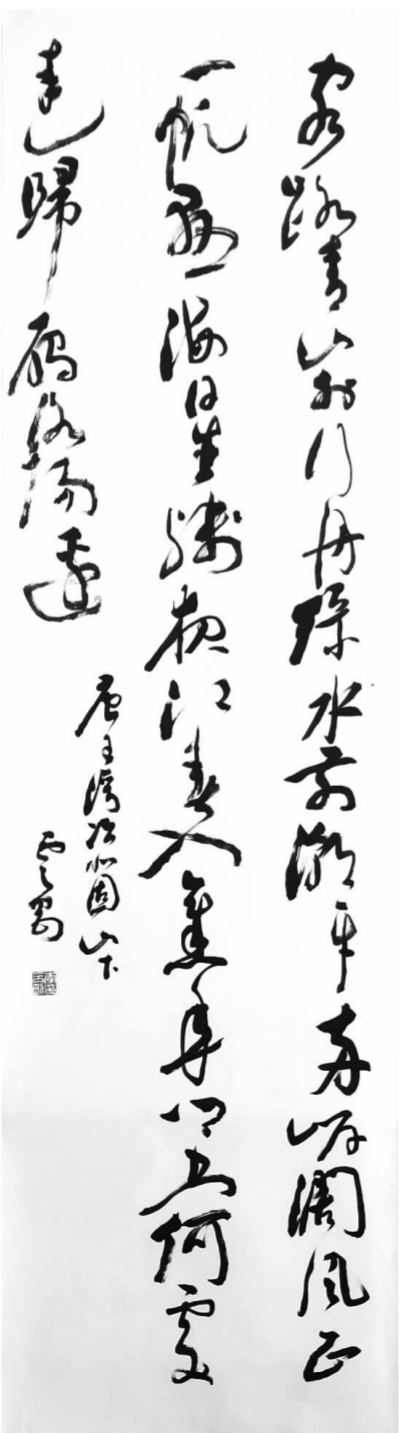 客路青山外行舟綠水前潮平兩岸闊風正
一帆懸海日生殘夜江春入舊年鄉書何處
達歸雁洛陽邊
唐王灣次北固山下